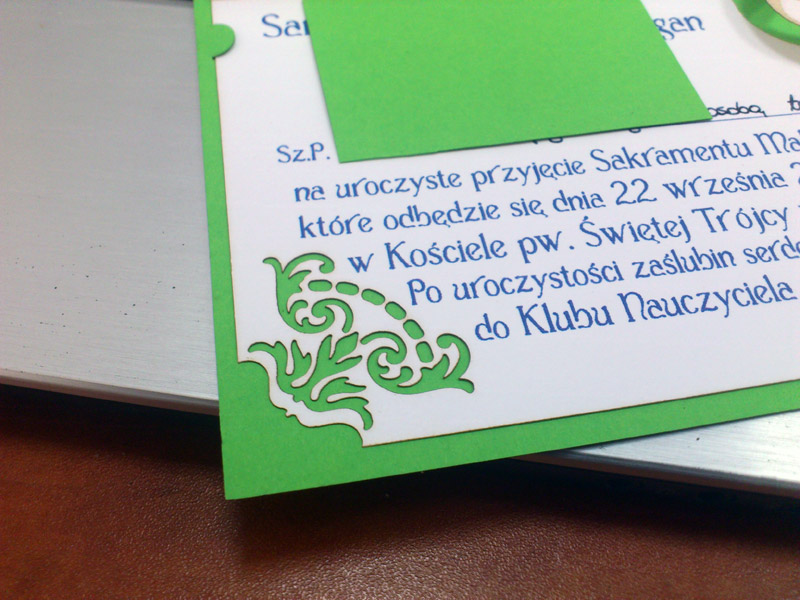 osobą
Sz.P.
na uroczyste przyjęcie Sakramentu
które odbędzie się dnia 22 września
w Kościele pw. Świętej Trójcy
Po uroczystości zaślubin
do Klubu Nauczyciela